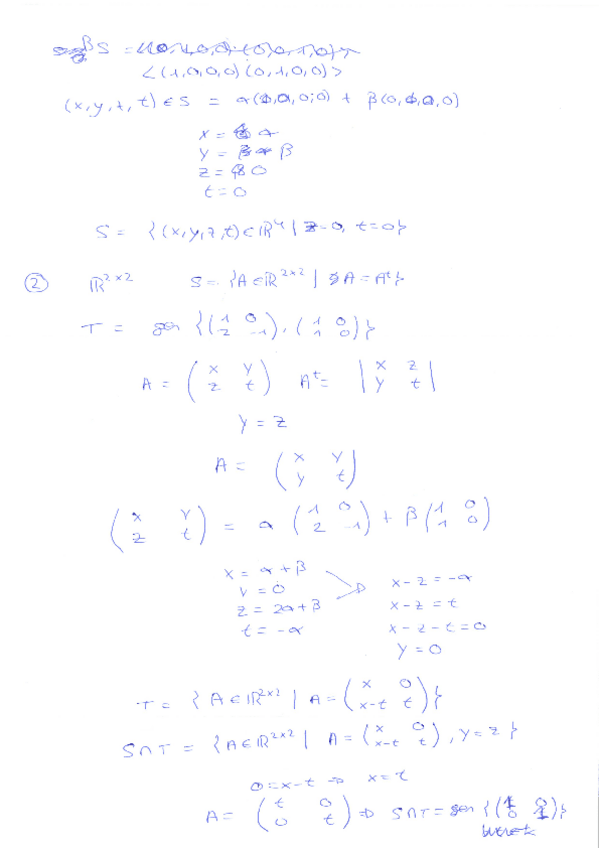 S = <(1,0,0,0) (0,0,1,0)>
<(1,0,0,0) (0,1,0,0)>
(x,y,z,t) ∈ S = α(1,0,0,0) + β(0,1,0,0)
x = α
y = β
z = 0
t = 0
S = {(x,y,z,t) ∈ ℝ⁴ | z=0, t=0}
② ℝ²ˣ² S = {A ∈ ℝ²ˣ² | A = Aᵗ}
T = gen {(1 0
2 -1), (1 0
1 0)}
A = (x y
z t) Aᵗ = |x z
y t|
y = z
A = (x y
y t)
(x y
z t) = α (1 0
2 -1) + β (1 0
1 0)
x = α + β
y = 0
z = 2α + β
t = -α
x - z = -α
x - z = t
x - z - t = 0
y = 0
T = {A ∈ ℝ²ˣ² | A = (x 0
x-t t)}
S∩T = {A ∈ ℝ²ˣ² | A = (x 0
x-t t), y = z}
0 = x - t ⇒ x = t
A = (t 0
0 t) ⇒ S∩T = gen {(1 0
0 1)}